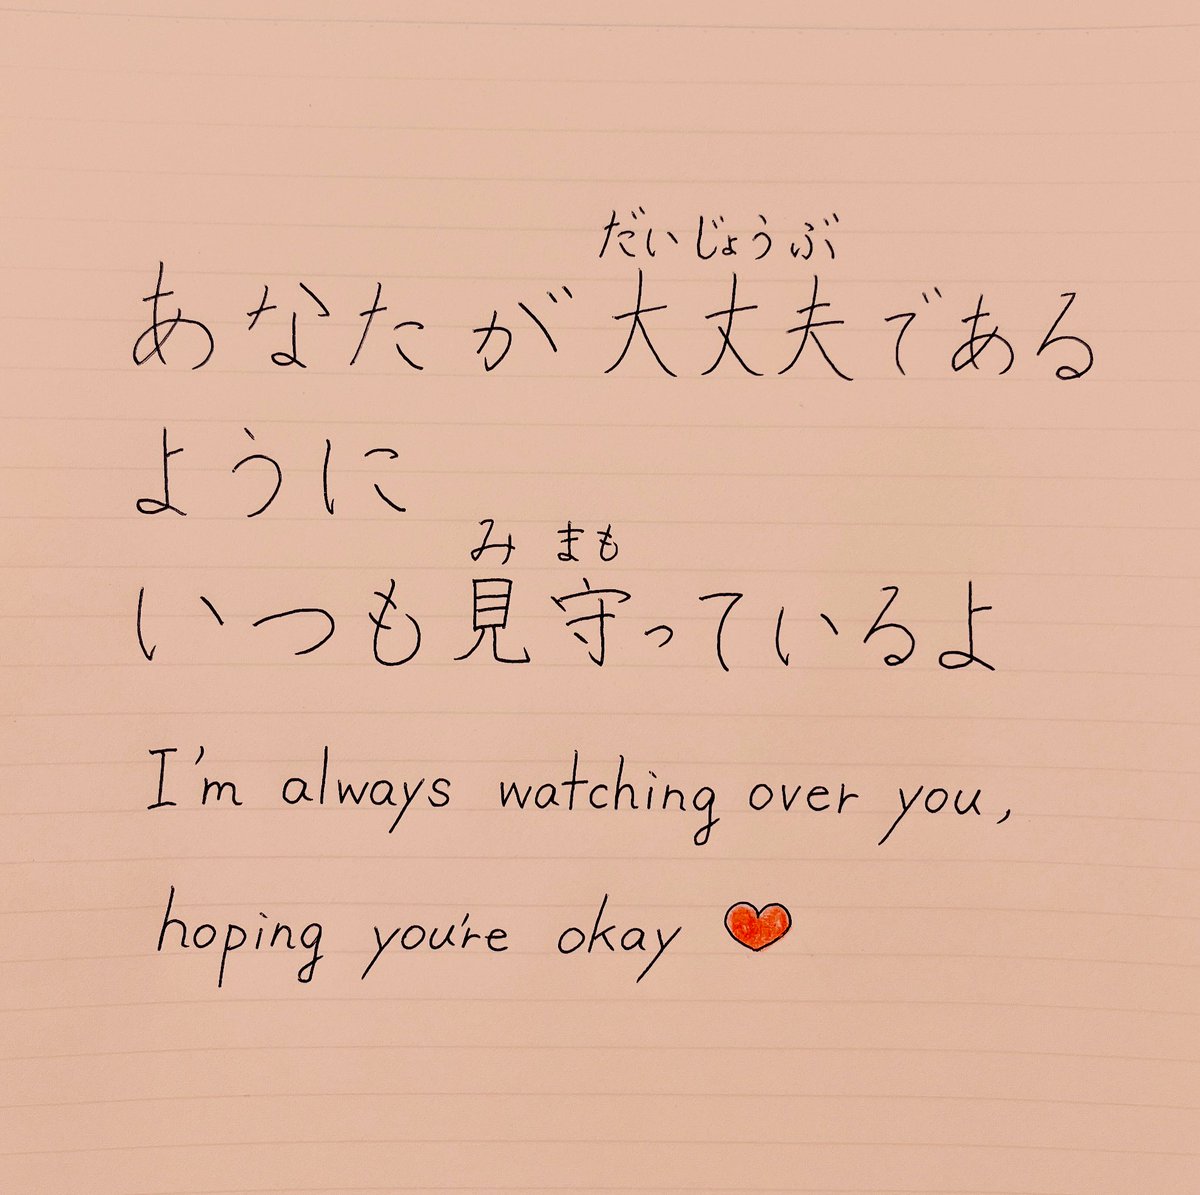 だいじょうぶ
あなたが大丈夫である
ように
みまも
いつも見守っているよ
I'm always watching over you,
hoping you're okay